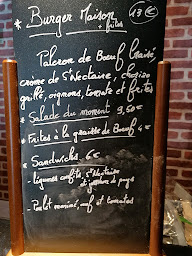 * Burger Maison 13 €
+ frites
Paleron de Boeuf braisé
crème de St Nectaire, chorizo
grillé, oignons, tomate et frites
* Salade du moment 9,50€
* Frites à la graisse de Boeuf 4€
* Sandwichs 6€
- légumes confits, St Nectaire
et jambon de pays
- Poulet mariné, œuf et tomates